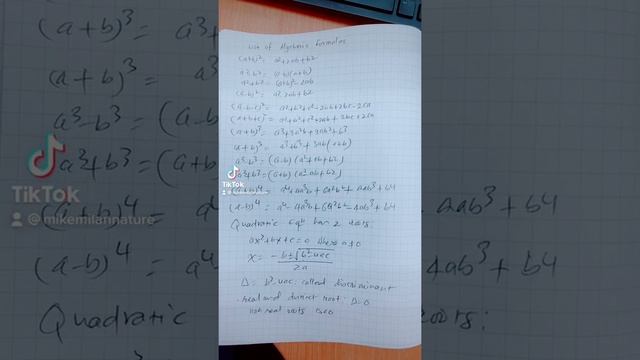 List of Algebraic Formulas
(a+b)²= a²+2ab+b2
a²-b²= (a-b)(a+b)
a²+b²= (a+b)²-2ab
(a-b)²= a²-2ab+b2
(a-b-c)²= a²+b²+c²-2ab+2bc-2ca
(a+b+c)²= a²+b²+c²+2ab+2bc+2ca
(a+b)³= a³+3a²b+3ab²+b³
(a+b)³= a³+b³+3ab(a+b)
a³-b³= (a-b)(a²+ab+b2)
a³+b³= (a+b)(a²-ab+b2)
(a+b)⁴= a⁴+4a³b+6a²b²+4ab³+b4
(a-b)⁴= a⁴-4a³b+6a²b²-4ab³+b4
Quadratic eqn has 2 roots:
ax²+bx+c=0 where a≠0
x= -b±√b²-4ac
2a
Δ= b²-4ac: called discriminant
real and distinct root: Δ>0
not real roots Δ<0
(a+b)²=
(a+b)³=
a³-b³=(a-b
a³+b³=(a+b
(a-b)⁴= a⁴
Quadratic
4ab³+b4
4ab³+b4
roots:
TikTok
@mikemilannature
TikTok